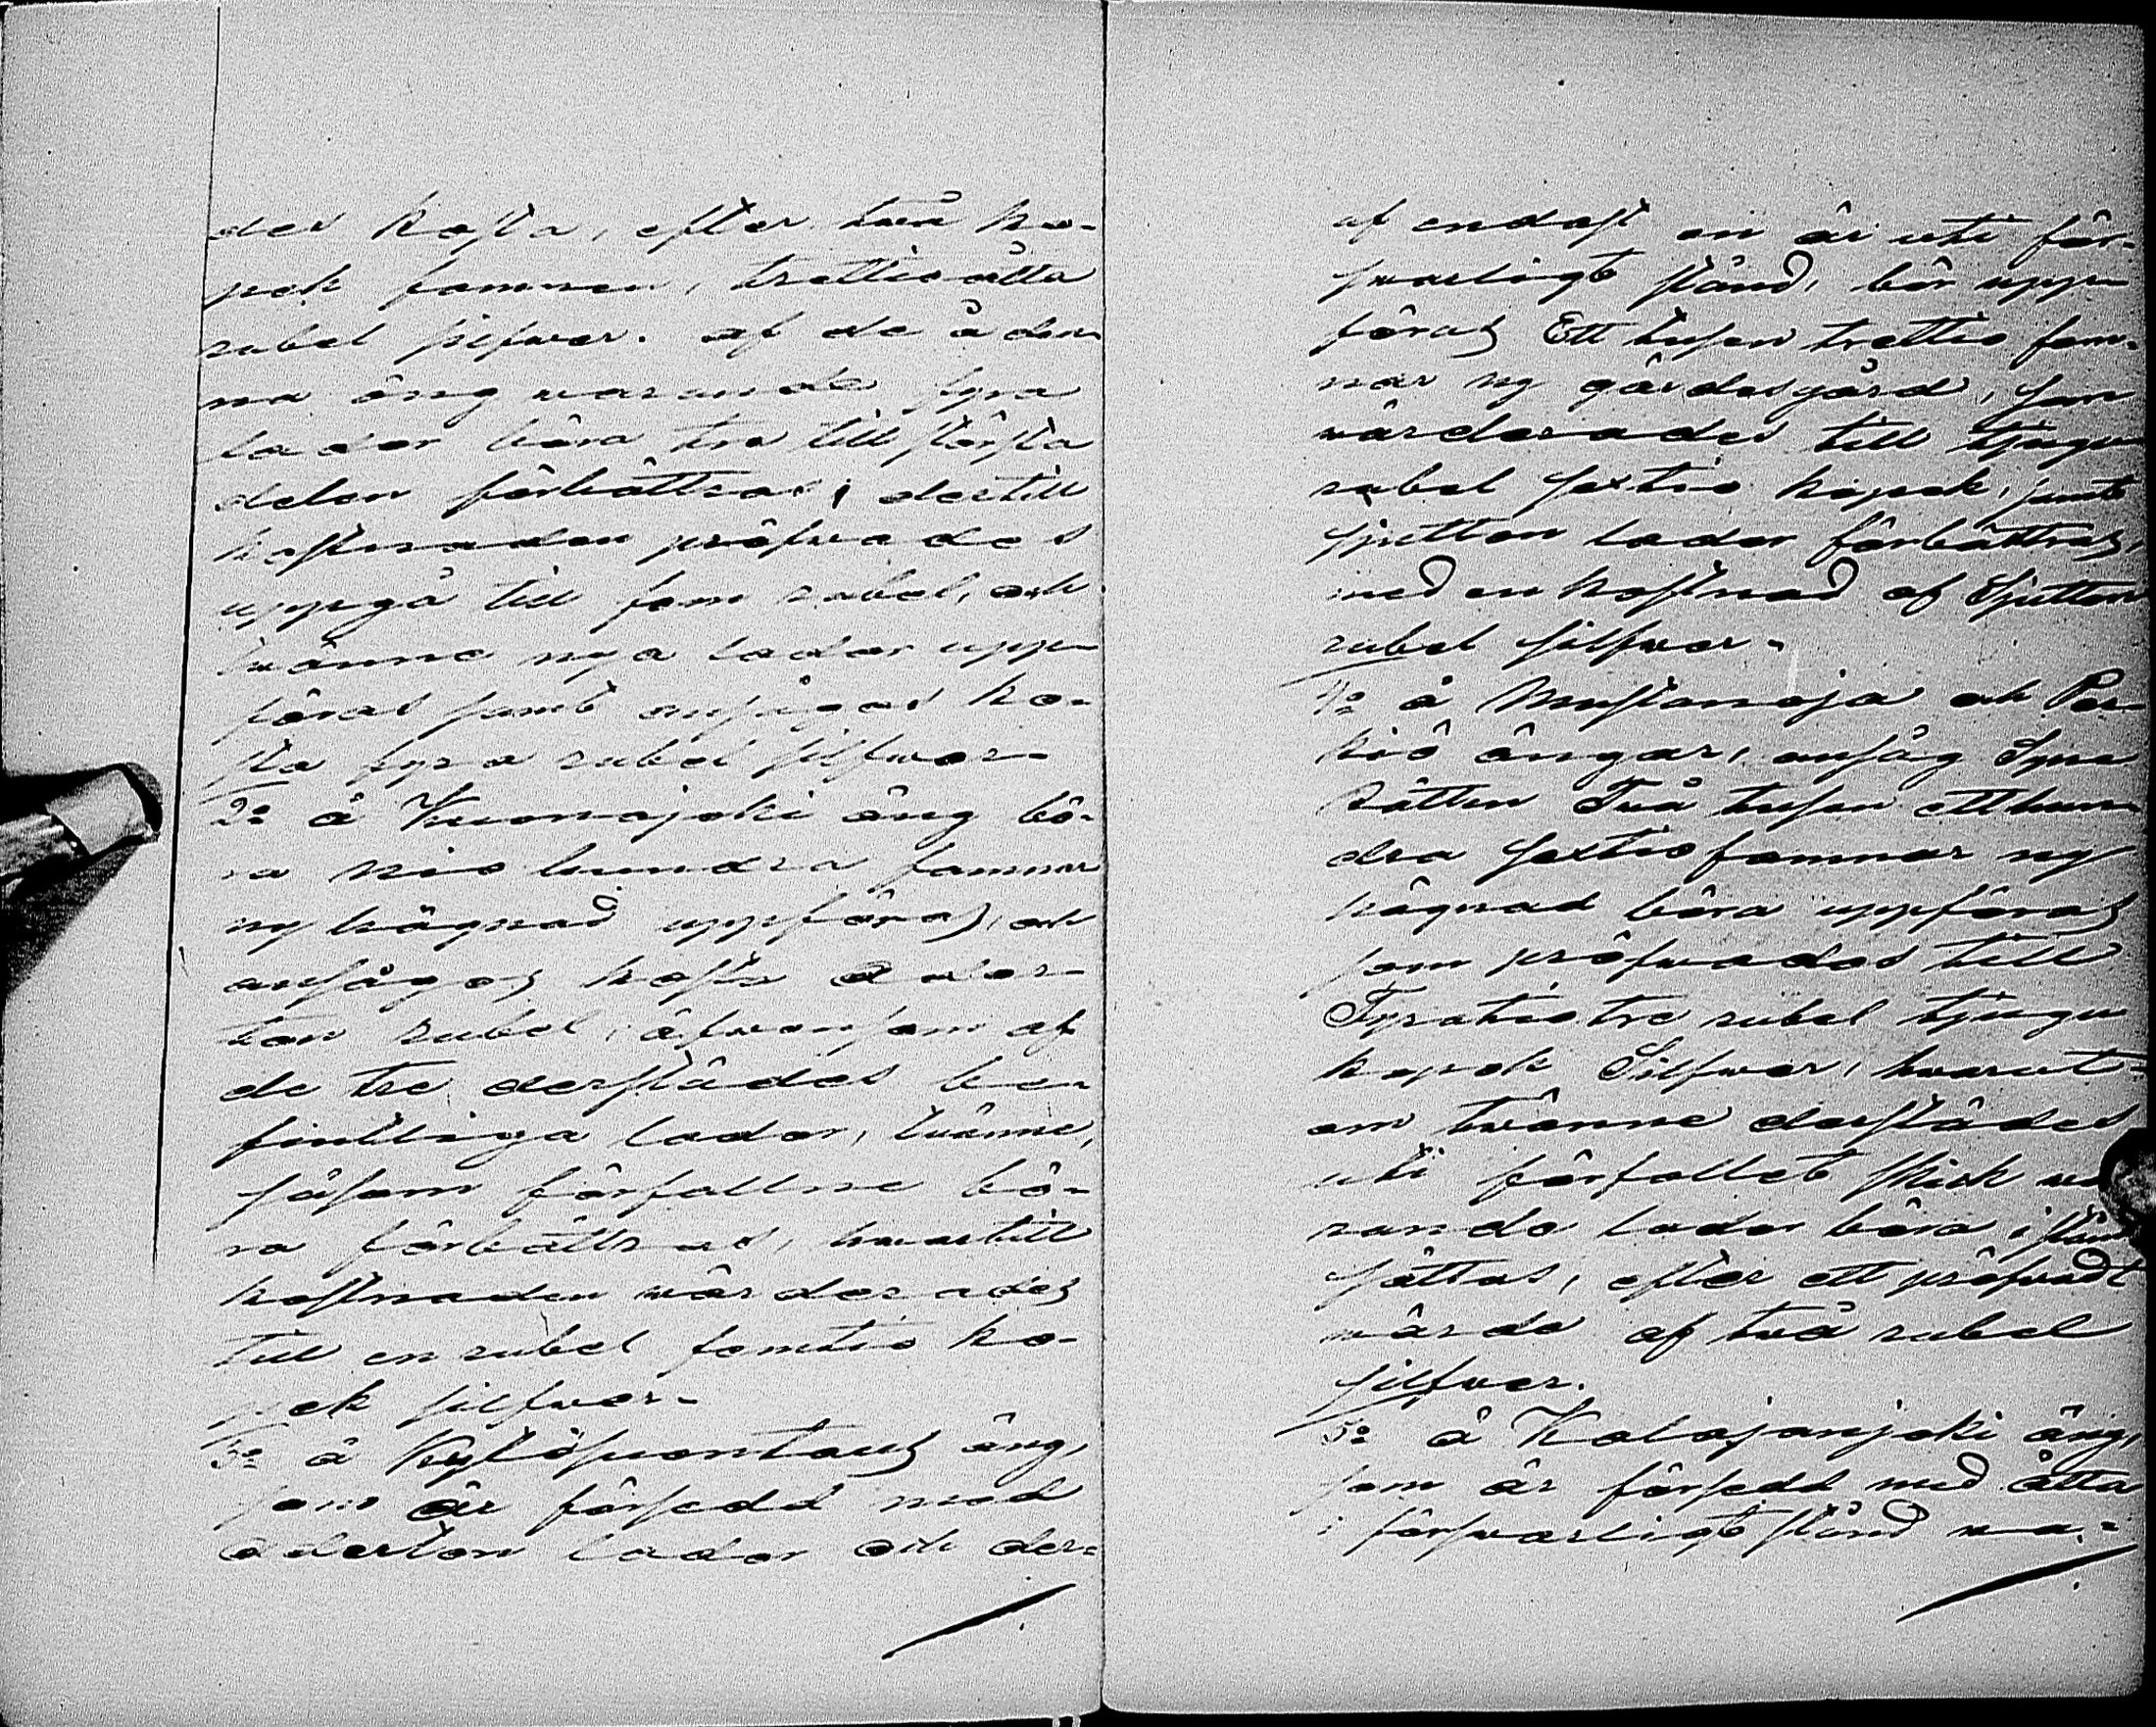 des kosta, efter två ko-
pek famnen, trettioåtta
rubel silfwer. af de å den-
na äng warande fyra
lador böra tre till största
delen förbättras; dertill
kostnaden pröfwades
uppgå till fem rubel, och
twänne nya lador upp-
föras samt ansågos ko-
sta fyra rubel silfwer-
2o å Kuonajoki äng bö-
ra nio hundra famnar
ny hägnad uppföras, och
ansågos kosta ader-
ton rubel, äfwensom af
de tre derstädes be-
fintliga lador, twänne,
såsom förfallne bö-
ra förbättras, hwartill
kostnaden wärderades
till en rubel femtio ko-
pek silfwer-
3o å Kylisuontaus äng,
som är försedd med
aderton lador och der-
af endast en är uti för-
swarligt stånd, bör upp-
föras Ett tusen trettio fam-
nar ny gärdesgård, som
wärderades till tjugu
rubel sextio kopek, samt
sjutton lador förbättras,
med en kostnad af Sjutton
rubel silfwer-
4o å Mustanoja och Per-
kiö ängar, ansåg Syne
Rätten Två tusen ett hun-
dra sextio famnar ny
hägnad böra uppföras
som pröfwades till
Fyratiotre rubel tjugu
kopek Silfwer, hwarut-
om twänne derstädes
uti förfallet skick wa
rande lador böra i stånd
sättas, efter ett pröfwadt
wärde af två rubel
silfwer.
5o å Kalajanjoki äng,
som är försedd med åtta
i försvarligt stånd wa-